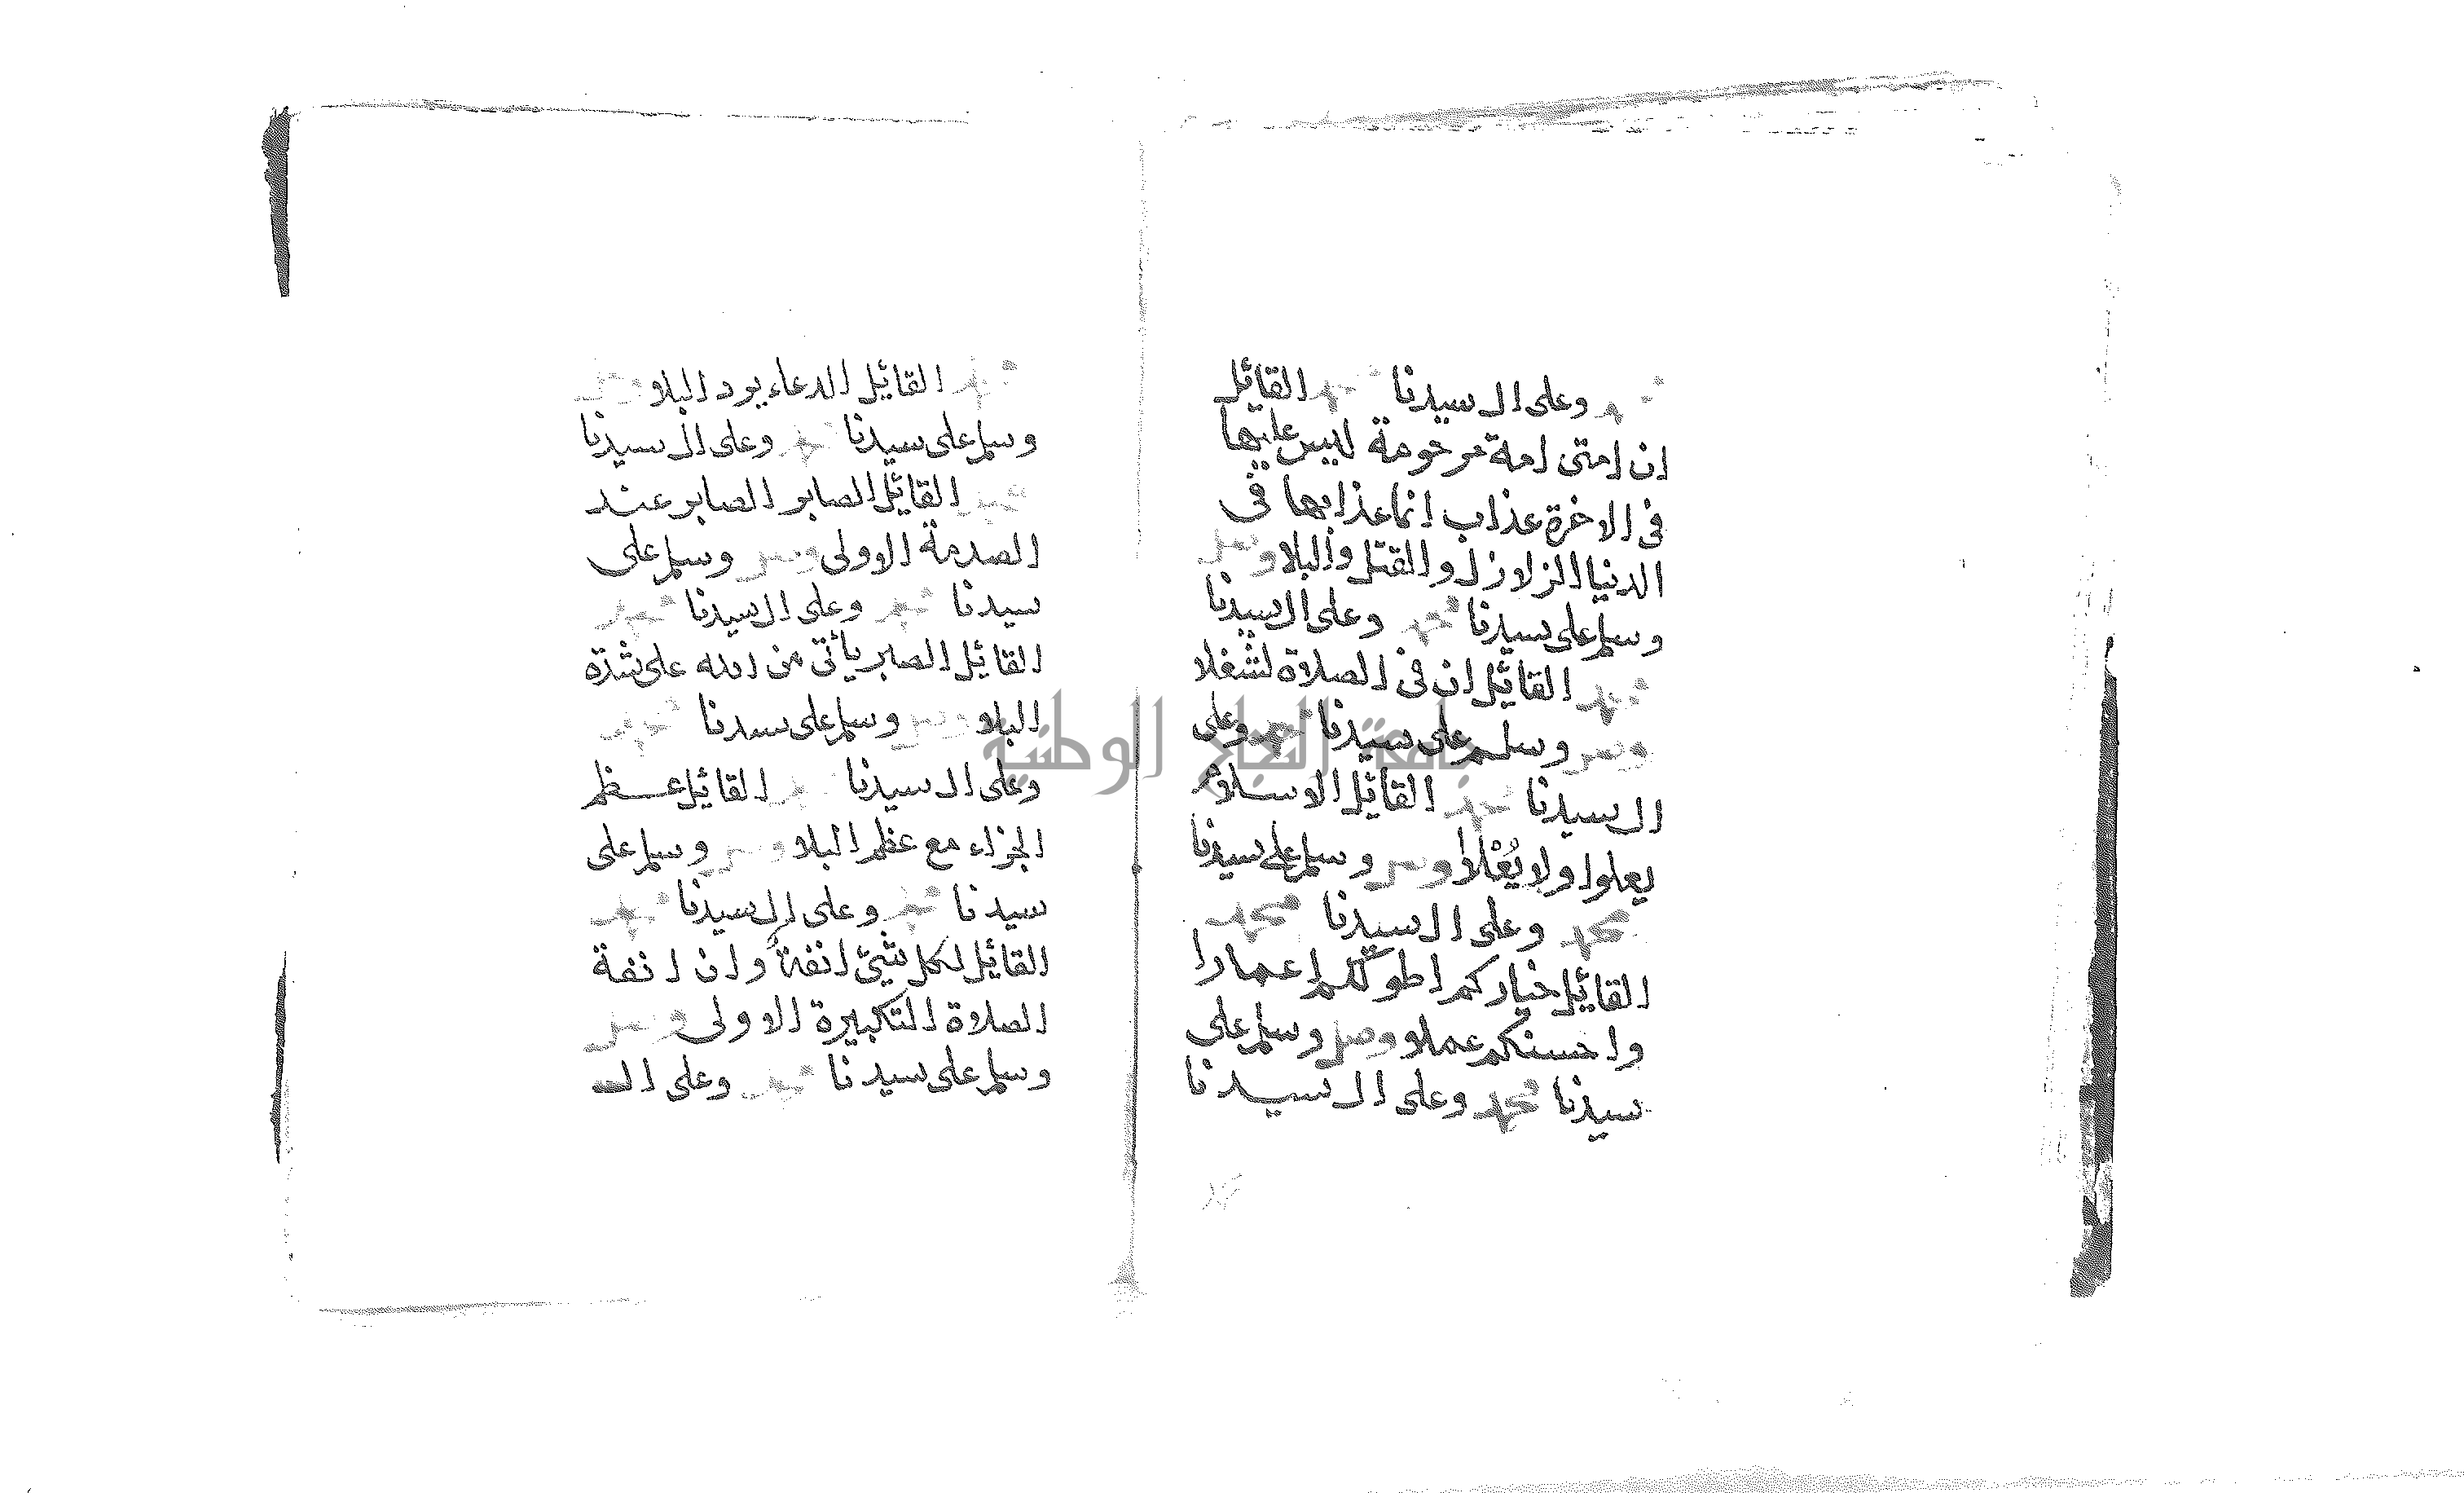 محمد وعلى ال سيدنا محمد القائل
ان امتى امة مرحومة ليس عليها
فى الاخرة عذاب انما عذابها فى
الدنيا الزلازل والقتل والبلا وصل
وسلم على سيدنا محمد وعلى ال سيدنا
محمد القائل ان فى الصلاة لشغلا
وصل وسلم على سيدنا محمد وعلى
ال سيدنا محمد القائل الاسلام
يعلوا ولا يُعْلا وصل وسلم على سيدنا
محمد وعلى ال سيدنا محمد
القائل خياركم اطولكم اعمارا
واحسنكم عملا وصل وسلم على
سيدنا محمد وعلى ال سيدنا
محمد القائل الدعاء يرد البلا وصل
وسلم على سيدنا محمد وعلى ال سيدنا
محمد القائل الصابر الصابر عند
الصدمة الاولى وصل وسلم على
سيدنا محمد وعلى ال سيدنا محمد
القائل الصبر يأتى من الله على شدة
البلا وصل وسلم على سيدنا محمد
وعلى ال سيدنا محمد القائل عظم
الجزاء مع عظم البلا وصل وسلم على
سيدنا محمد وعلى ال سيدنا محمد
القائل لكل شيئ انفة وان انفة
الصلاة التكبيرة الاولى وصل
وسلم على سيدنا محمد وعلى ال
جامعة النجاح الوطنية